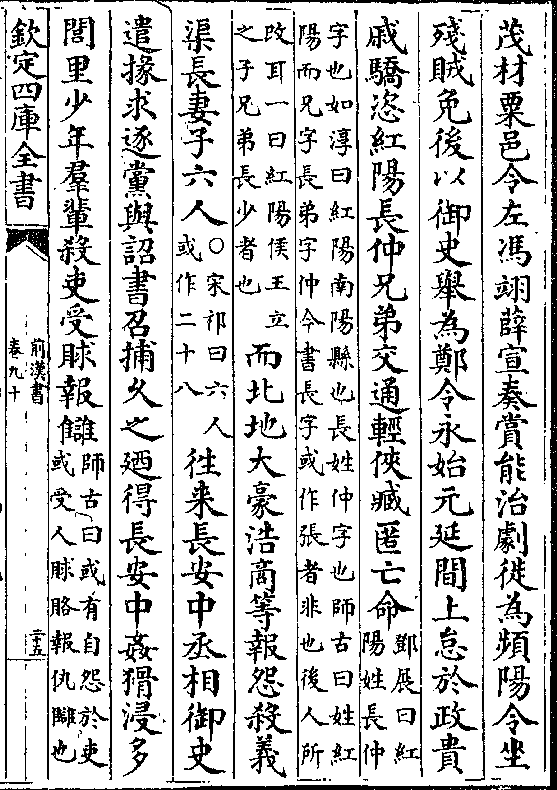 茂材粟邑令左馮翊薛宣奏賞能治劇徙為頻陽令坐
殘賊免後以御史舉為鄭令永始元延間上怠於政貴
戚驕恣紅陽長仲兄弟交通輕俠臧匿亡命
鄧展曰紅
陽姓長仲
字也如淳曰紅陽南陽縣也長姓仲字也師古曰姓紅
陽而兄字長弟字仲今書長字或作張者非也後人所
改耳一曰紅陽侯王立
之子兄弟長少者也
而北地大豪浩商等報怨殺義
渠長妻子六人
○宋祁曰六人
或作二十八
往来長安中丞相御史
遣掾求逐黨與詔書召捕乆之廼得長安中姦猾浸多
閭里少年羣輩殺吏受賕報讎
師古曰或有自怨於吏
或受人賕賂報仇讎也
欽定四庫全書
前漢書
卷九十
二十五